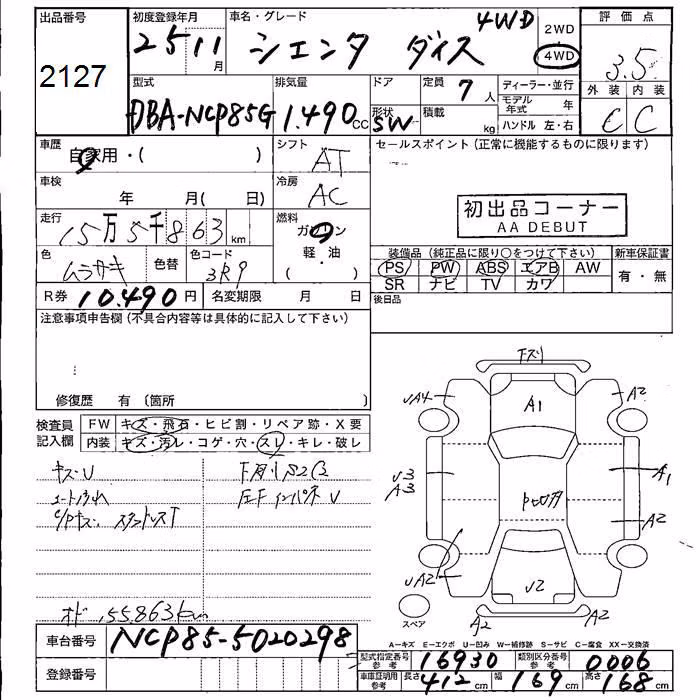 出品番号 2127
初度登録年月 25 11 月
車名・グレード シエンタ ダイス 4WD
2WD
4WD
評価点 3.5
外装 内装
C C
型式 DBA-NCP85G
排気量 1.490 cc
ドア
形状 SW
定員 7 人
積載 kg
ディーラー・並行
モデル年式 年
ハンドル 左・右
車歴 自家用・( )
シフト AT
セールスポイント (正常に機能するものに限ります)
車検 年 月( 日)
冷房 AC
初出品コーナー
AA DEBUT
走行 15万5千863 km
燃料 ガソリン
軽・油
( )
色 ムラサキ 色替
色コード 3R9
装備品 (純正品に限り○をつけて下さい)
新車保証書
PS PW ABS エアB AW
SR ナビ TV カワ
有・無
R券 10.490 円
名変期限 月 日
後日品
注意事項申告欄 (不具合内容等は具体的に記入して下さい)
修復歴 有 〔箇所 〕
検査員記入欄
FW キズ・飛石・ヒビ割・リペア跡・X要
内装 キズ・汚レ・コゲ・穴・スレ・キレ・破レ
キズ・U
下廻りS2C2
シート汚れ
スタンドレスT
オド155.863km
下スリ
UA4
A1
A2
U3
A3
A1
A2
UA2
U2
A2
A2
スペア
車台番号 NCP85-5020298
登録番号
A-キズ E-エクボ U-凹み W-補修跡 S-サビ C-腐食 XX-交換済
型式指定番号 参考 16930
類別区分番号 参考 0006
車庫証明用 参考 長さ 412 cm 幅 169 cm 高さ 168 cm